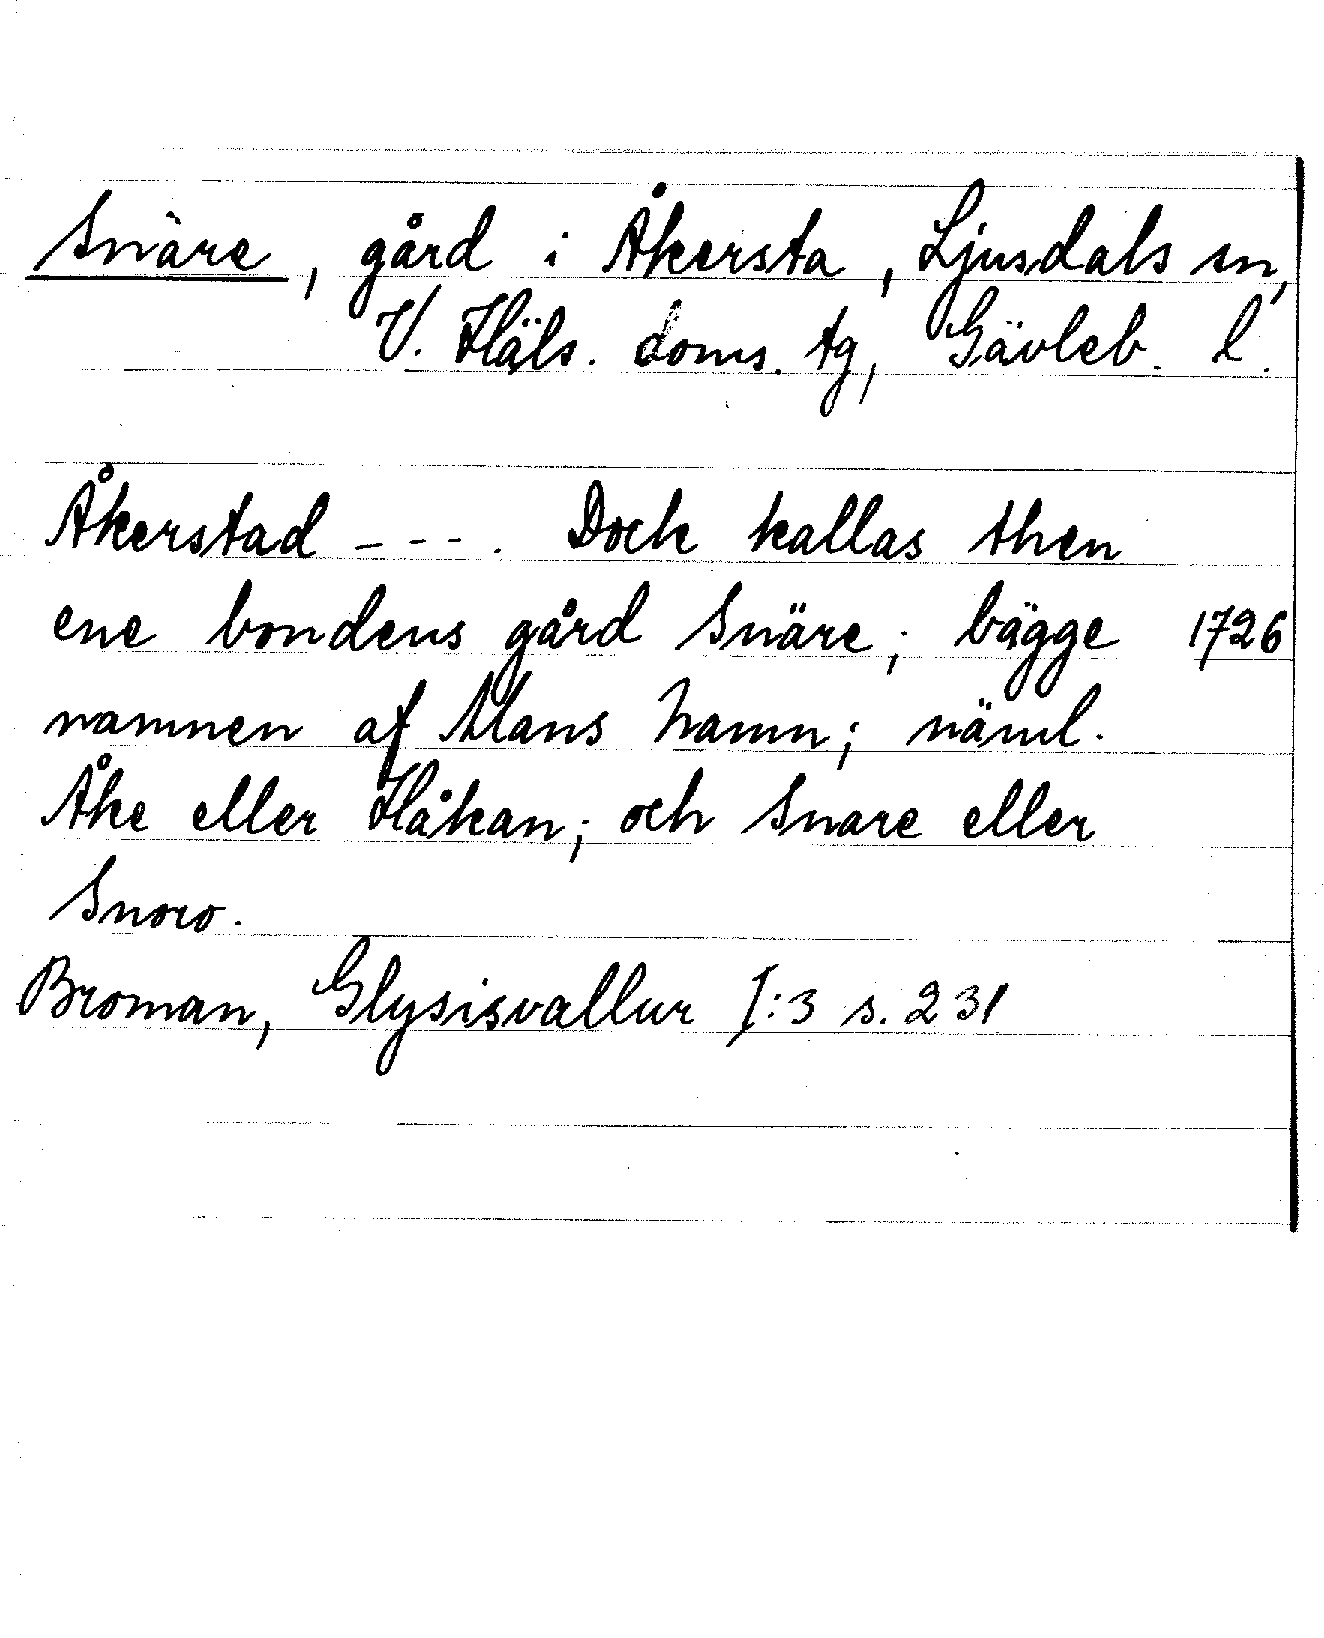 Snäre, gård i Åkersta, Ljusdals sn,
V. Häls. doms. tg, Gävleb. l.
Åkerstad ---. Dock kallas then
ene bondens gård Snäre; bägge 1726
namnen af Mans Namn; näml.
Åke eller Håkan; och Snare eller
Snoro.
Broman, Glysisvallur I:3 s. 231